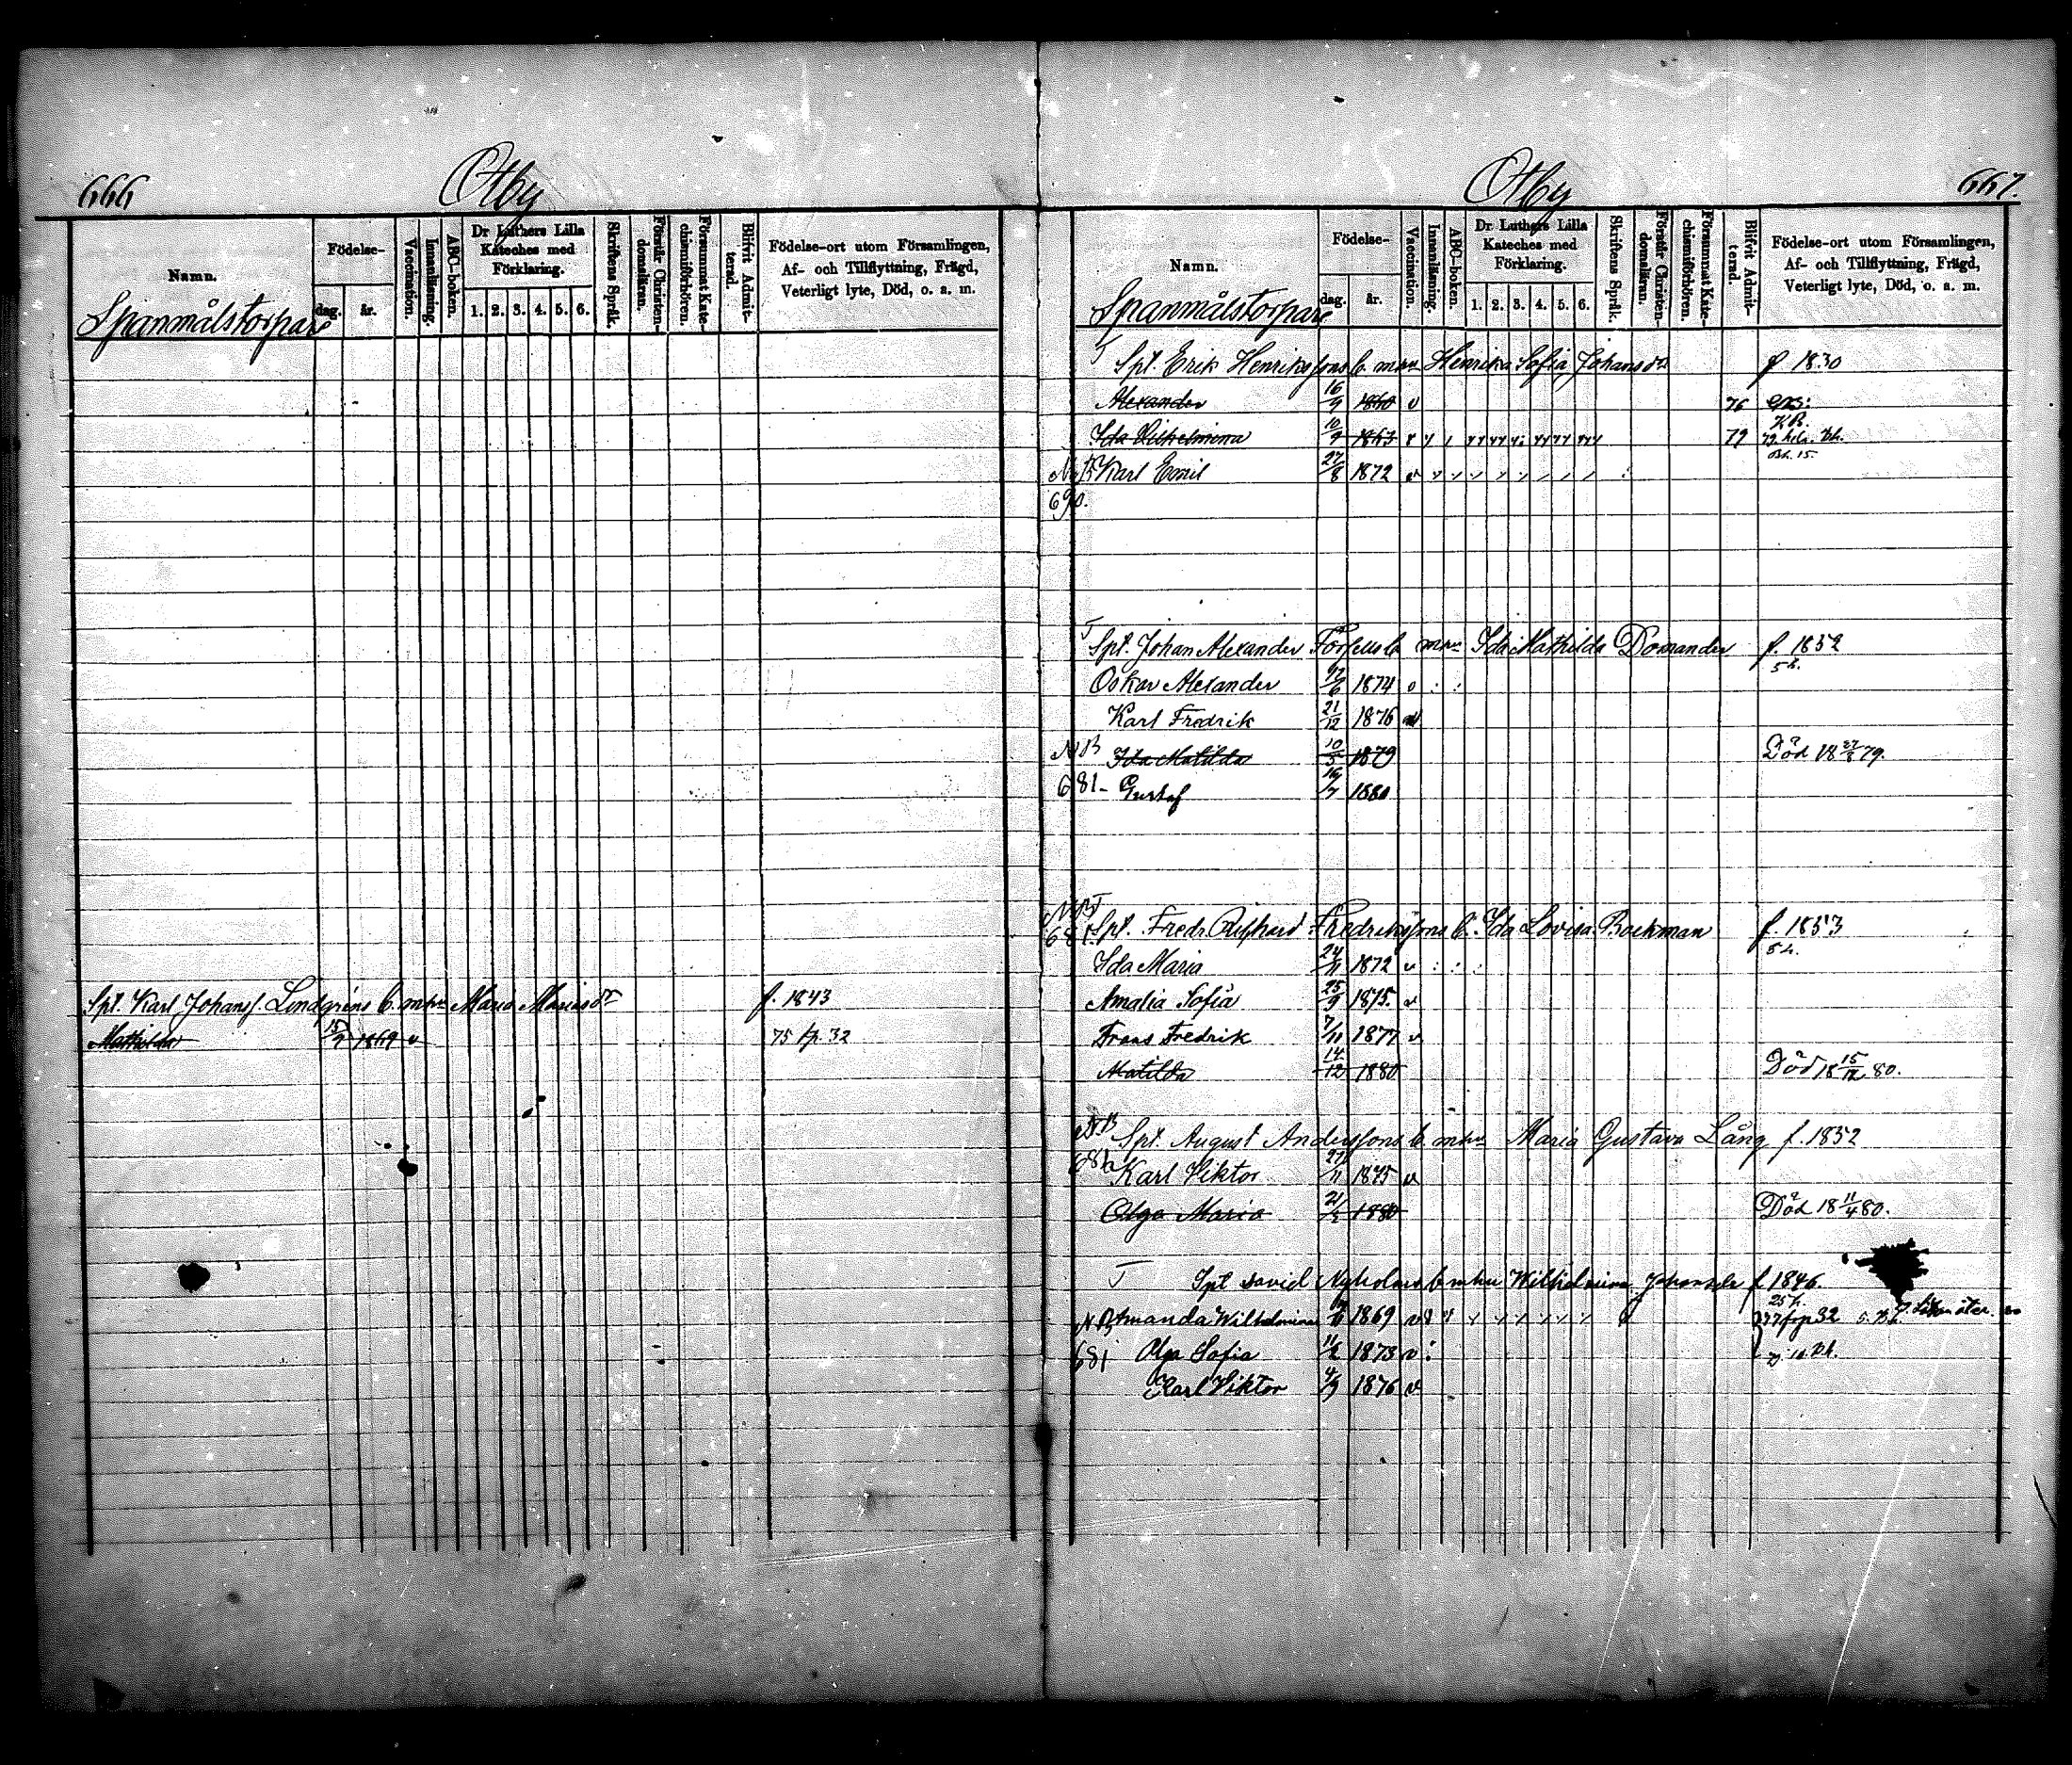 666
Otby
Namn.
Födelse-
dag.
år.
Vaccination.
Innanläsning.
ABC-boken.
Dr Luthers Lilla Kateches med Förklaring.
1. 2. 3. 4. 5. 6.
Skriftens Språk.
Förstår Christendomsläran.
Försummat Katechismiförhören.
Blifvit Admitterad.
Födelse-ort utom Församlingen,
Af- och Tillflyttning, Frägd,
Veterligt lyte, Död, o. a. m.
Spanmålstorpare
Spt. Karl Johans. Lindgréns b. m. hu Maria Mariasdr f. 1843
Mathilda 15/9 1869 v 75 fp. 32
Otby
667.
Namn.
Födelse-
dag.
år.
Vaccination.
Innanläsning.
ABC-boken.
Dr Luthers Lilla Kateches med Förklaring.
1. 2. 3. 4. 5. 6.
Skriftens Språk.
Förstår Christendomsläran.
Försummat Katechismiförhören.
Blifvit Admitterad.
Födelse-ort utom Församlingen,
Af- och Tillflyttning, Frägd,
Veterligt lyte, Död, o. a. m.
Spanmålstorpare
Spt. Erik Henrikssons b. m. hu Henrika Sofia Johansdr f 1830
Alexander 16/9 1860 v 76
Ida Vilhelmina 10/9 1863 79
NB Karl Emil 27/8 1872 v
690.
Spt. Johan Alexander Forsells b m. hu Ida Mathilda Domander f. 1852
Oskar Alexander 1874 v : :
Karl Fredrik 21/12 1876
NB Ida Matilda 10/5 1879 Död 18 79.
681 Gustaf 1880
NB
681 Spt. Fredr. Fredrikssons b. Ida Lovisa Backman f. 1853
Ida Maria 24/11 1872 v : : :
Amalia Sofia 25/9 1875. v
Frans Fredrik 7/11 1877 v
Matilda 14/12 1880 Död 18 15/12 80.
NB Spt. August Anderssons b. m. hu Maria Gustava Lång f. 1852
681 Karl Viktor 27/11 1875 v
Olga Maria 1880 Död 18 11/4 80.
Spt David Nyholms b m hu Wilhelmina Johansdr f 1846.
NB Amanda Wilhelmina 1869 v 77 fr p 32
681 Olga Sofia 11/2 1873 v :
Karl Viktor 4/9 1876 v